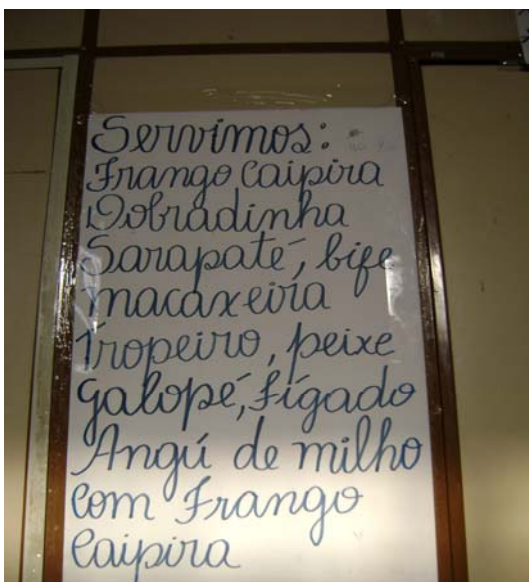 Servimos:
Frango Caipira
Dobradinha
Sarapaté, bife
macaxeira
Tropeiro, peixe
galopé, fígado
Angú de milho
Com Frango
Caipira